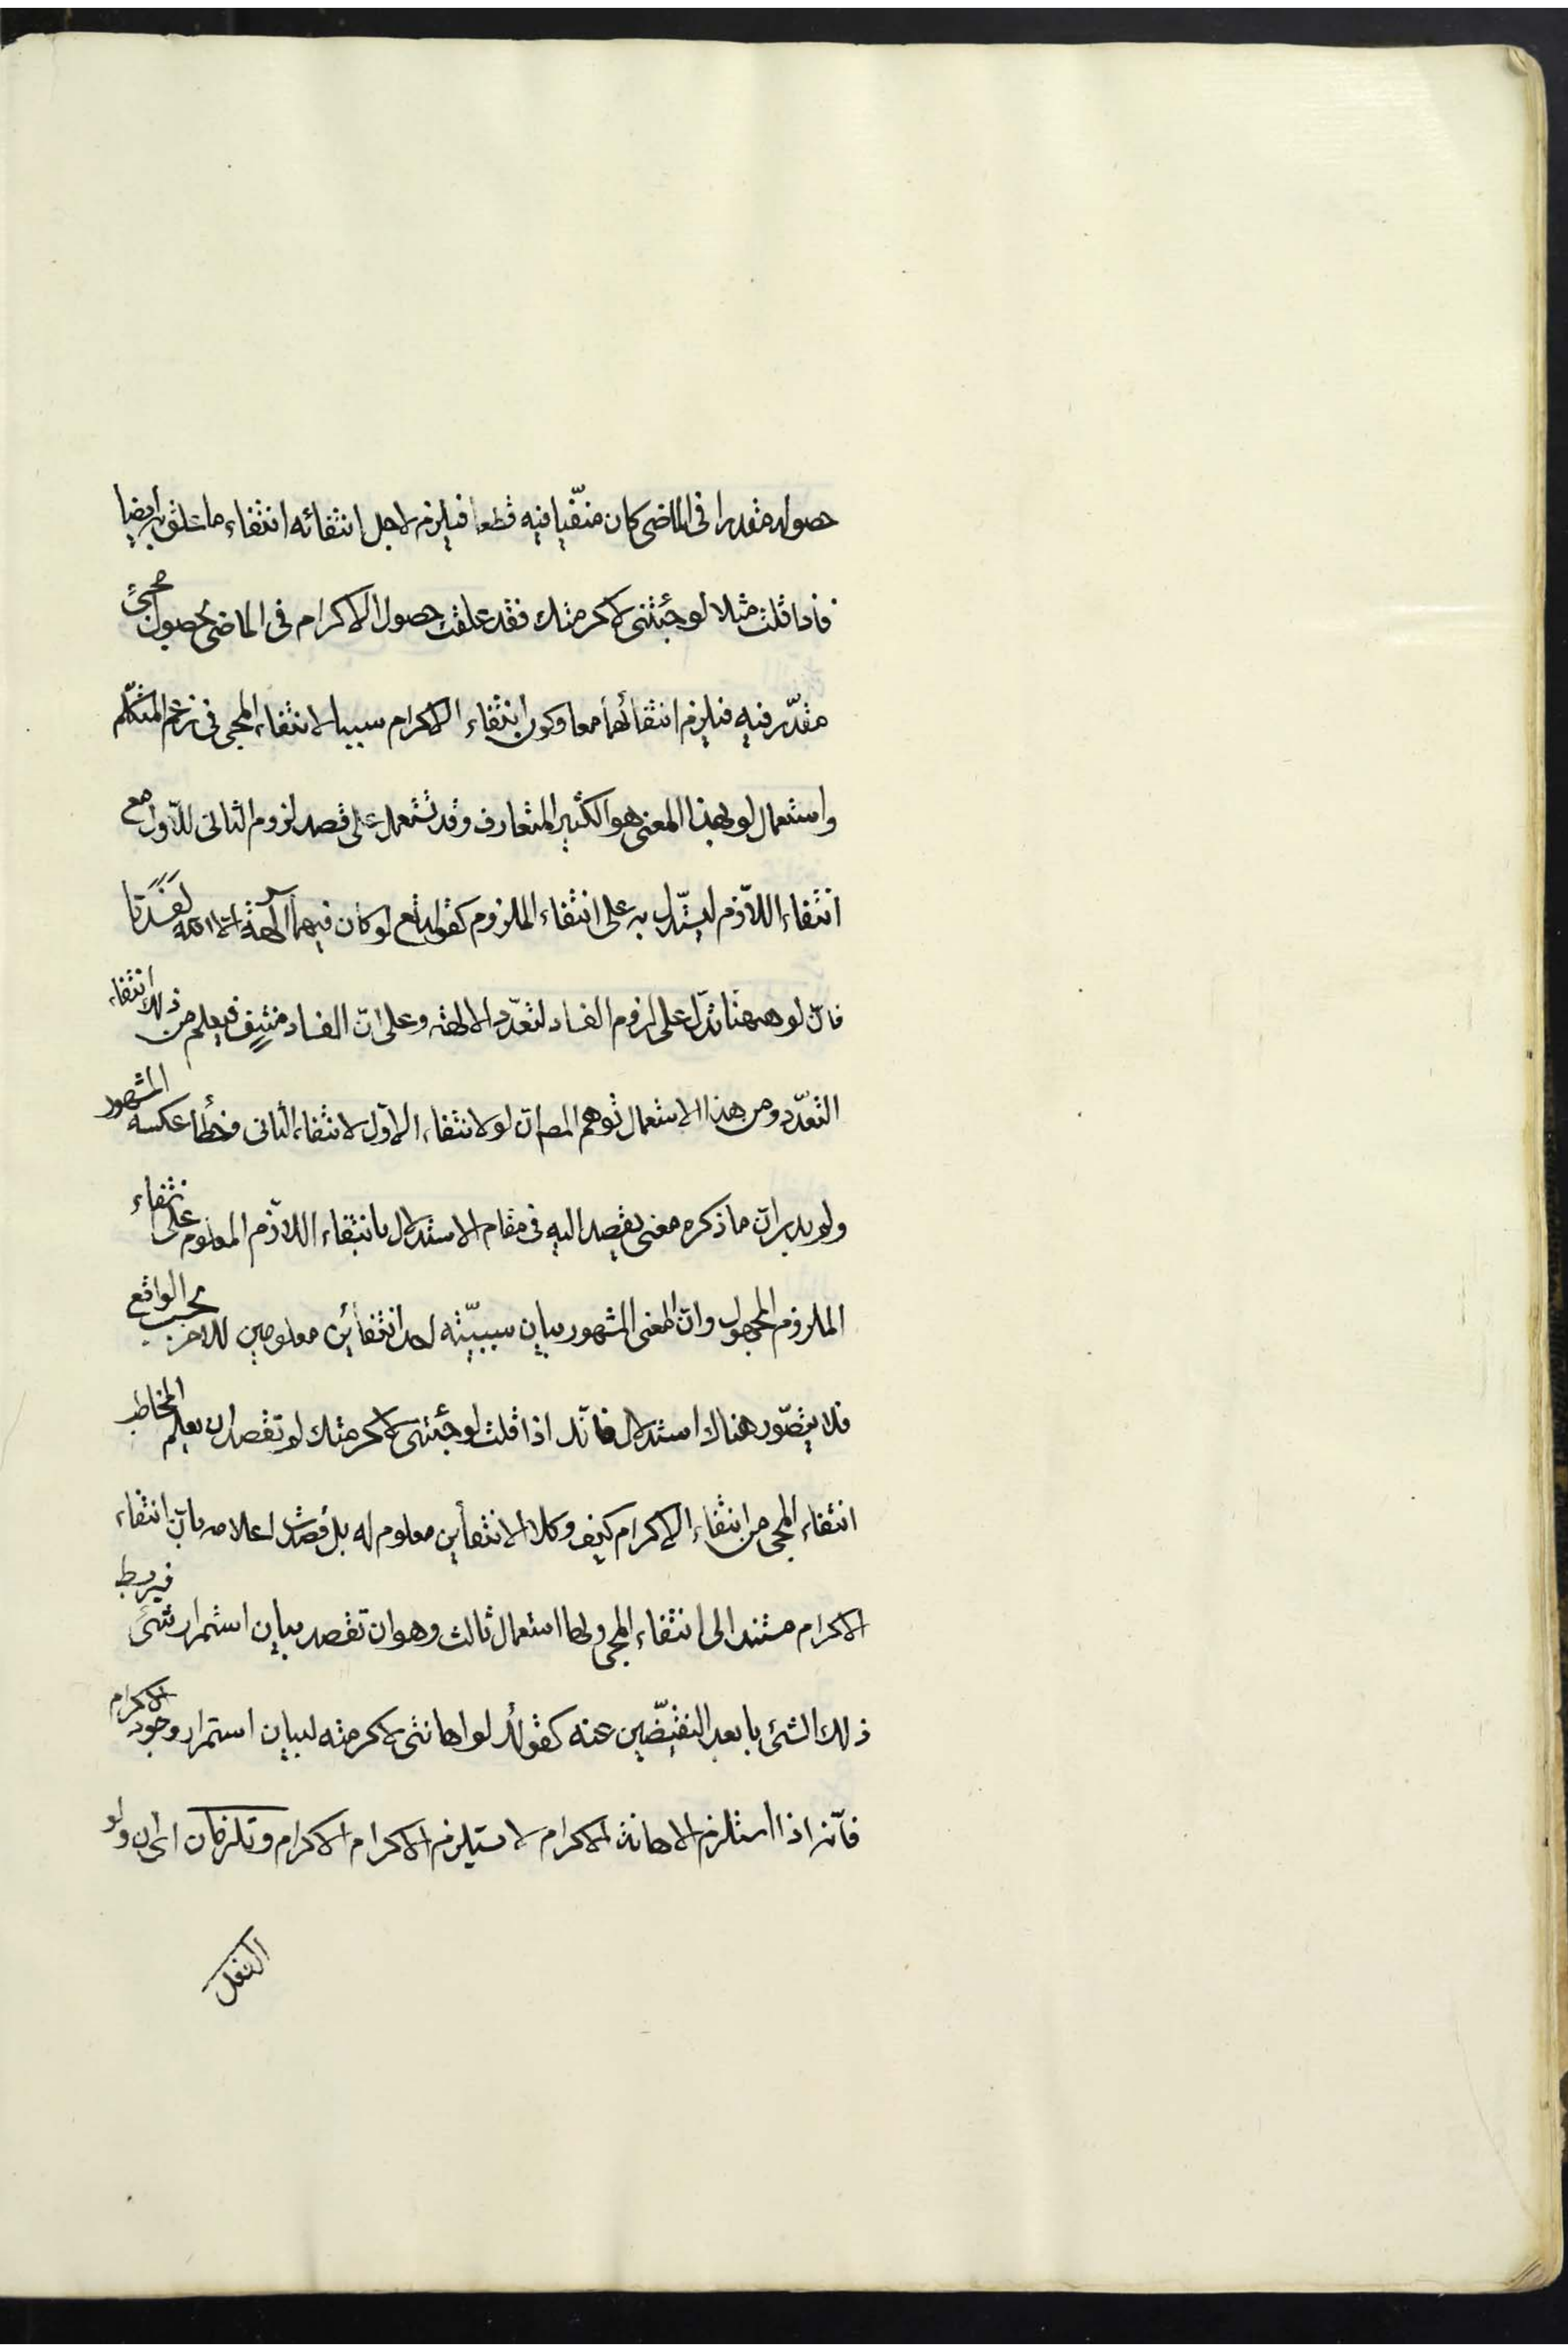 حصوله مقدرا فى الماضى كان منتفيا فيه قطعا فيلزم لاجل انتفائه انتفاء ما علق به ايضا
فاذا قلت مثلا لو جئتنى لاكرمتك فقد علقت حصول الاكرام فى الماضى بحصول مجئ
مقدّر فيه فيلزم انتفائهما معا وكون انتفاء الاكرام سببا لانتفاء المجى فى زعم المتكلّم
واستعمال لو بهذا المعنى هو الكثير المتعارف وقد تستعمل على قصد لزوم الثانى للاوّل مع
انتفاء اللاّزم ليستدّل به على انتفاء الملزوم كقوله تع لو كان فيهما آلهة الا الله لفسدتا
فانّ لو ههنا تدّل على لزوم الفساد لتعدّد الالهة وعلى انّ الفساد منتف فيعلم من ذلك انتفاء
التعدّد ومن هذا الاستعمال توهم المص انّ لو لانتفاء الاوّل لانتفاء الثانى وخطأ عكسه المشهور
ولو يدبر انّ ما ذكره معنى يقصد اليه فى مقام الاستدلال بانتفاء اللاّزم المعلوم على انتفاء
الملزوم المجهول وان المعنى المشهور بيان سببيّته احد انتفائين معلومين للاخر بحسب الواقع
فلا يتصّور هناك استدلال فانّك اذا قلت لو جئتنى لاكرمتك لم تقصد ان يعلم المخاطب
انتفاء المجى من انتفاء الاكرام كيف وكلا الانتفأين معلوم له بل قصدت اعلامه بانّ انتفاء
الاكرام مستند الى انتفاء المجى ولها استعمال ثالث وهو ان تقصد بيان استمرار شئ فيربط
ذلك الشئ بابعد النقيضّين عنه كقولك لو اهاننى لاكرمته لبيان استمرار وجود الاكرام
فانّه اذا استلزم الاهانة الاكرام لا ستيلزم الاكرام الاكرام وتلزمان اى ان ولو
الفعل